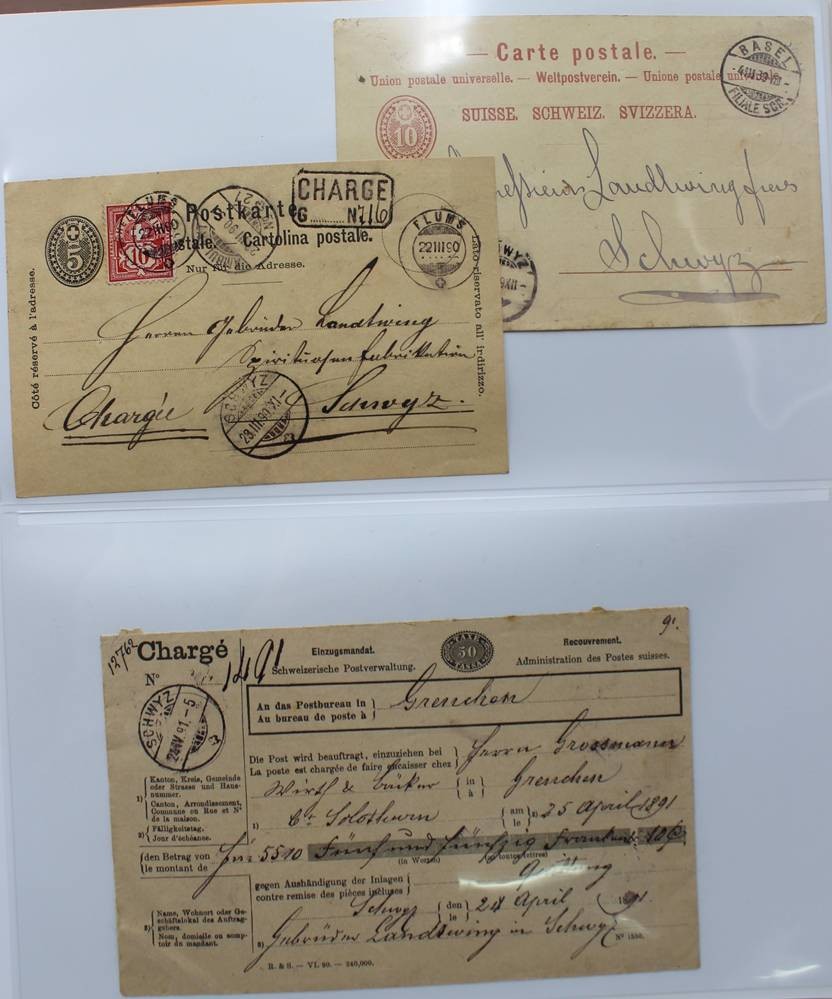 — Carte postale. —
Union postale universelle. — Weltpostverein. — Unione postale universale
SUISSE. SCHWEIZ. SVIZZERA.
10
BASEL
FILIALE
Landtwing frères
Schwyz
Postkarte.
Cartolina postale.
Nur für die Adresse.
Côté réservé à l'adresse.
Lato riservato all' indirizzo.
5
10
CHARGÉ
G N. 716
FLUMS
22 III 90
FLUMS
22 III 90
Herren Gebrüder Landtwing
Spirituosen Fabrikation
Chargée Schwyz.
SCHWYZ
23.III.90.XI-
12762
Chargé
Nº 1491
Einzugsmandat.
Schweizerische Postverwaltung.
TAXE
50
TASSA
Recouvrement.
Administration des Postes suisses.
9.
An das Postbureau in
Au bureau de poste à
Grenchen
SCHWYZ
24.IV.91.-5
Die Post wird beauftragt, einzuziehen bei
La poste est chargée de faire encaisser chez
Herrn Grossmann
Wirth & Bäcker in
à Grenchen
1) Ct. Solothurn am
le 2) 25 April 1891
1) Kanton, Kreis, Gemeinde
oder Strasse und Haus-
nummer.
Canton, Arrondissement,
Commune ou Rue et Nº
de la maison.
2) Fälligkeitstag.
Jour d'échéance.
den Betrag von
le montant de
55 10 Fünf und fünfzig Franken 10 C.
(in Worten) (en toutes lettres)
gegen Aushändigung der Inlagen
contre remise des pièces incluses
Quittung
Schwyz den
le 24 April 1891.
3) Name, Wohnort oder Ge-
schäftslokal des Auftrag-
gebers.
Nom, domicile ou comp-
toir du mandant.
3) Gebrüder Landtwing in Schwyz
R. & S. — VI. 90. — 240,000.